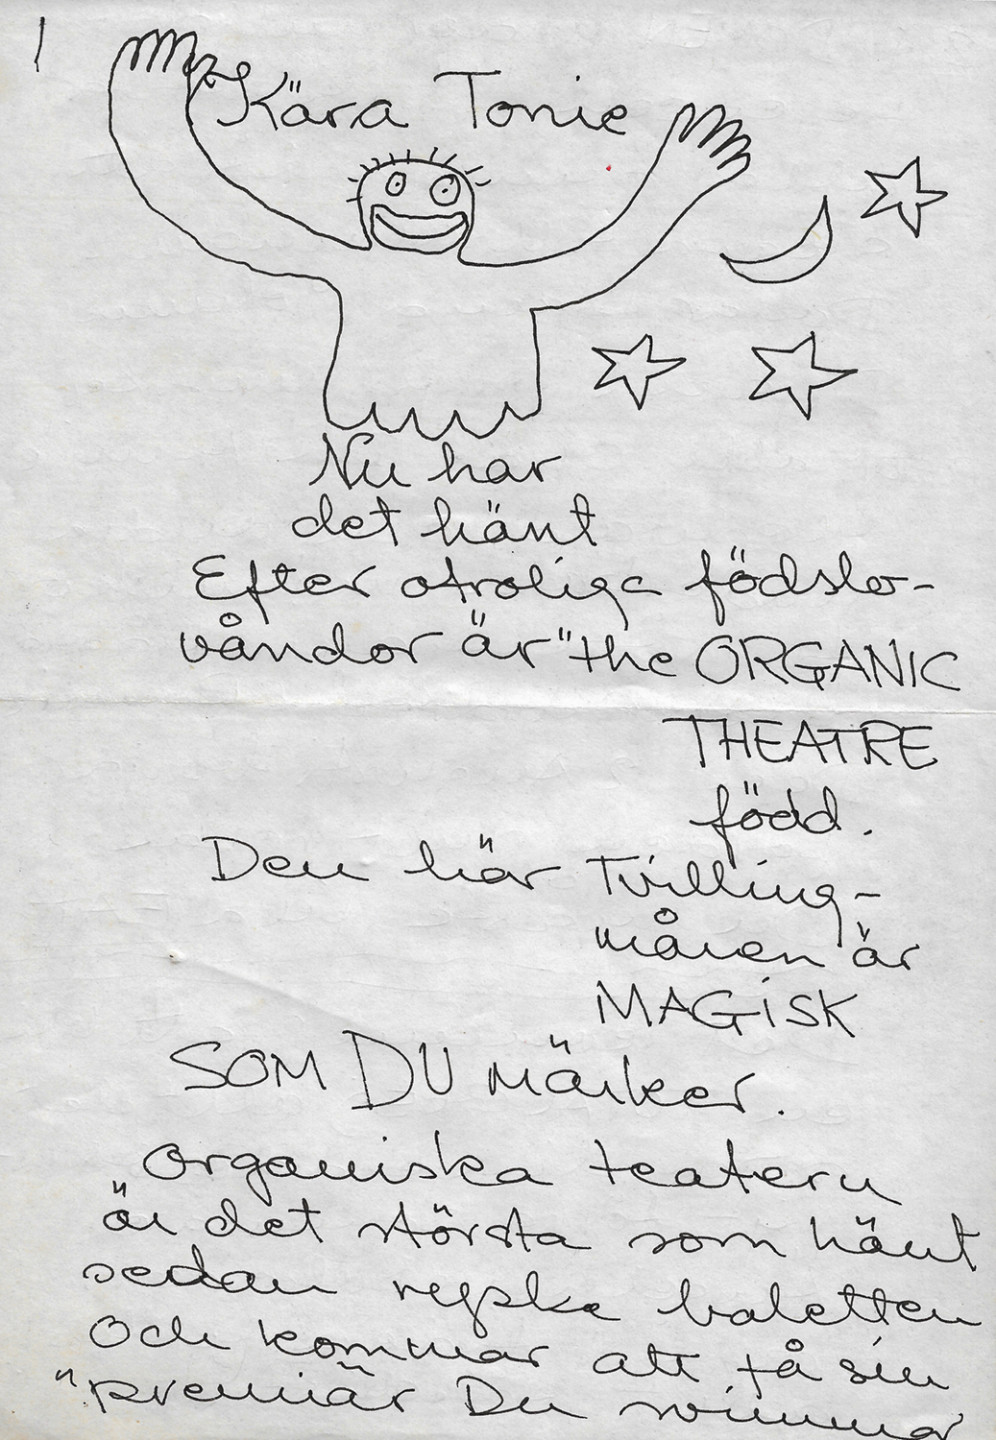 1
Kära Tonie
Nu har
det hänt
Efter otroliga födslo-
våndor är "the ORGANIC
THEATRE
född.
Den här Tvilling-
månen är
MAGiSK
SOM DU märker.
Organiska teatern
är det största som hänt
sedan ryska baletten
och kommer att få sin
"premiär Du